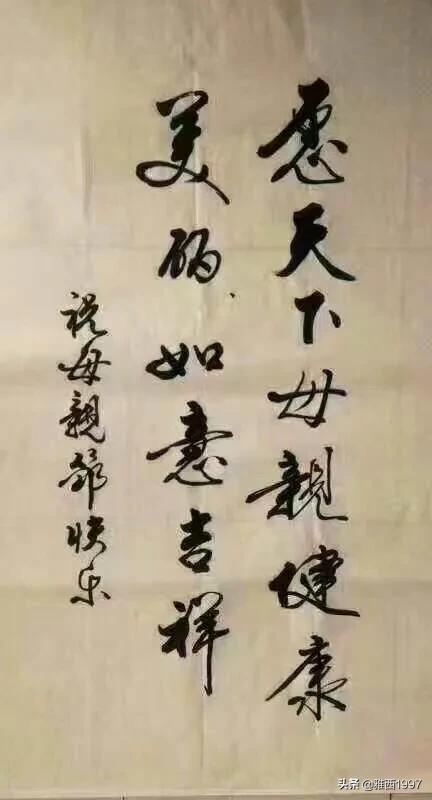 愿天下母親健康
美丽如意吉祥
祝母親節快乐
头条 @雅西1997